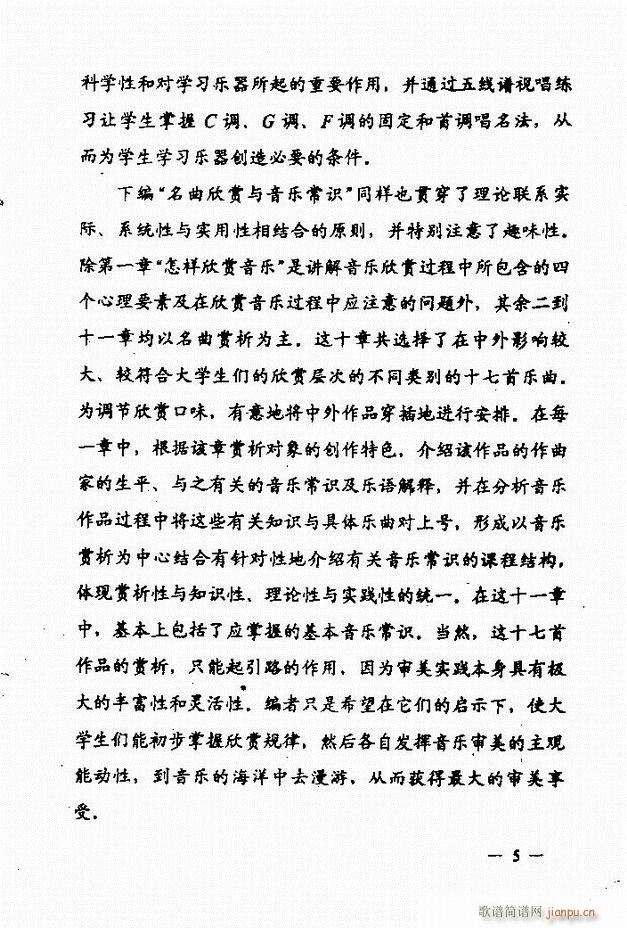 科学性和对学习乐器所起的重要作用，并通过五线谱视唱练
习让学生掌握C调、G调、F调的固定和首调唱名法，从
而为学生学习乐器创造必要的条件。
下编“名曲欣赏与音乐常识”同样也贯穿了理论联系实
际、系统性与实用性相结合的原则，并特别注意了趣味性。
除第一章“怎样欣赏音乐”是讲解音乐欣赏过程中所包含的四
个心理要素及在欣赏音乐过程中应注意的问题外，其余二到
十一章均以名曲赏析为主。这十章共选择了在中外影响较
大、较符合大学生们的欣赏层次的不同类别的十七首乐曲。
为调节欣赏口味，有意地将中外作品穿插地进行安排。在每
一章中，根据该章赏析对象的创作特色，介绍该作品的作曲
家的生平、与之有关的音乐常识及乐语解释，并在分析音乐
作品过程中将这些有关知识与具体乐曲对上号，形成以音乐
赏析为中心结合有针对性地介绍有关音乐常识的课程结构，
体现赏析性与知识性、理论性与实践性的统一。在这十一章
中，基本上包括了应掌握的基本音乐常识。当然，这十七首
作品的赏析，只能起引路的作用，因为审美实践本身具有极
大的丰富性和灵活性。编者只是希望在它们的启示下，使大
学生们能初步掌握欣赏规律，然后各自发挥音乐审美的主观
能动性，到音乐的海洋中去漫游，从而获得最大的审美享
受。
— 5 —
歌谱简谱网 jianpu.cn